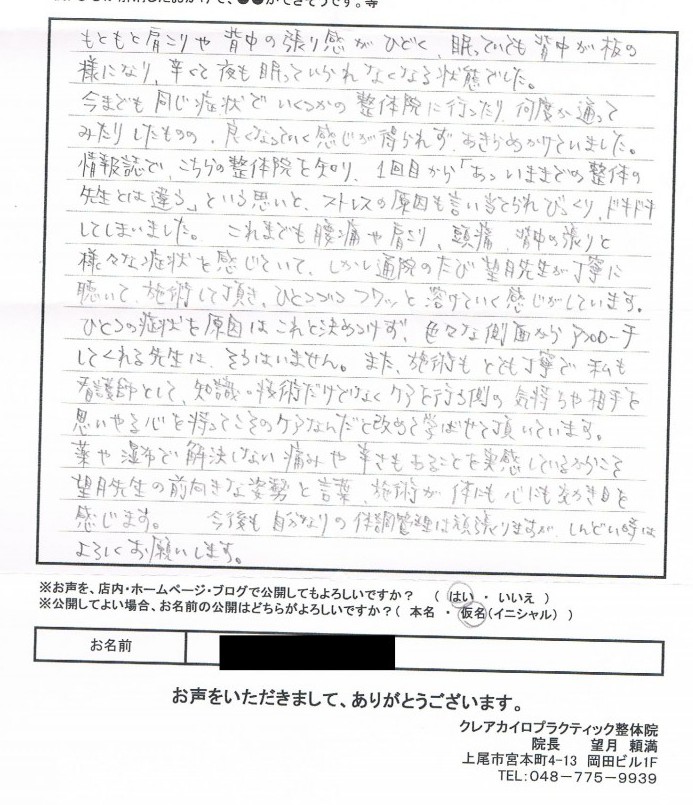 もともと肩こりや背中の張り感がひどく、眠っていても背中が板の
様になり、辛くて夜も眠っていられなくなる状態でした。
今までも同じ症状でいくつかの整体院に行ったり、何度か通って
みたりしたものの、良くなっていく感じが得られず、あきらめかけていました。
情報誌で、こちらの整体院を知り、1回目から「あっいままでの整体の
先生とは違う」という思いと、ストレスの原因も言い当てられびっくり、ドキドキ
してしまいました。これまでも腰痛や肩こり、頭痛、背中の張りと
様々な症状を感じていて、しかし通院のたび望月先生が丁寧に
聴いて、施術して頂き、ひとつづつフワッと溶けていく感じがしています。
ひとつの症状を原因はこれと決めつけず、色々な側面からアプローチ
してくれる先生は、そうはいません。また、施術もとても丁寧で私も
看護師として、知識や技術だけでなくケアを行う側の気持ちや相手を
思いやる心を持ってこそのケアなんだと改めて学ばせて頂いています。
薬や湿布で解決しない痛みや辛さもあることを実感しているからこそ
望月先生の前向きな姿勢と言葉、施術が体にも心にも効き目を
感じます。 今後も自分なりの体調管理は頑張りますが、しんどい時は
よろしくお願いします。
※お声を、店内・ホームページ・ブログで公開してもよろしいですか? ( はい ・ いいえ )
※公開してよい場合、お名前の公開はどちらがよろしいですか?( 本名 ・ 仮名(イニシャル) )
お名前
お声をいただきまして、ありがとうございます。
クレアカイロプラクティック整体院
院長 望月 頼満
上尾市宮本町4-13 岡田ビル1F
TEL:048-775-9939